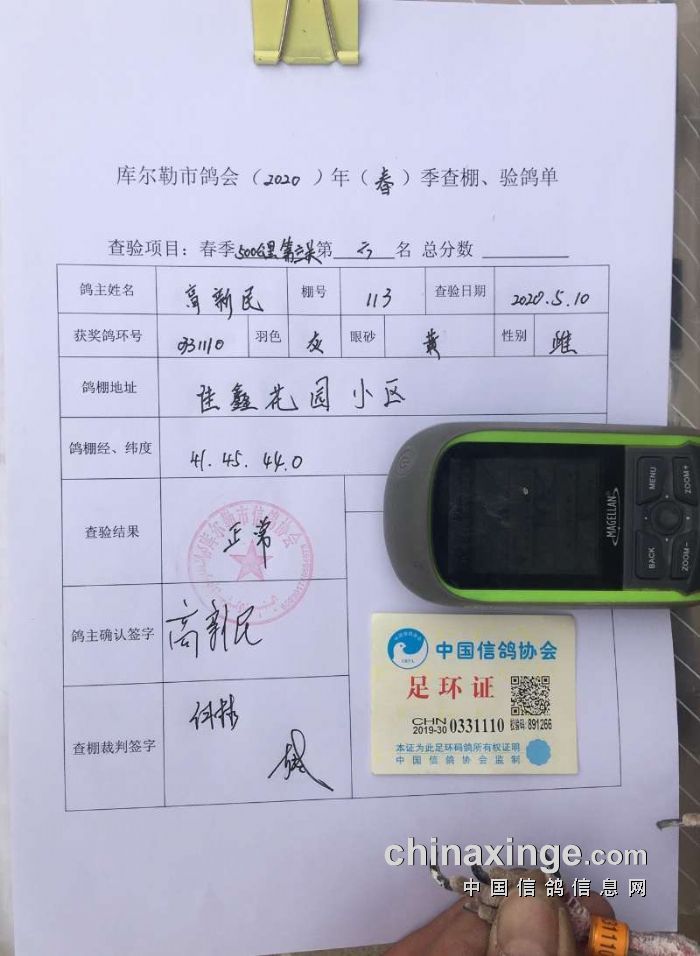 库尔勒市鸽会（2020）年（春）季查棚、验鸽单
查验项目：春季500公里第三关第 六 名 总分数
鸽主姓名 高新民 棚号 113 查验日期 2020.5.10
获奖鸽环号 0331110 羽色 灰 眼砂 黄 性别 雌
鸽棚地址 佳鑫花园小区
鸽棚经、纬度 41.45.44.0
查验结果 正常
库尔勒市信鸽协会
鸽主确认签字 高新民
查棚裁判签字
MAGELLAN
MENU
ZOOM+
BACK
ZOOM-
中国信鸽协会
足环证
CHN
2019-30 0331110 校验码: 891266
本证为此足环码鸽所有权证明
中国信鸽协会监制
chinaxinge.com
中国信鸽信息网